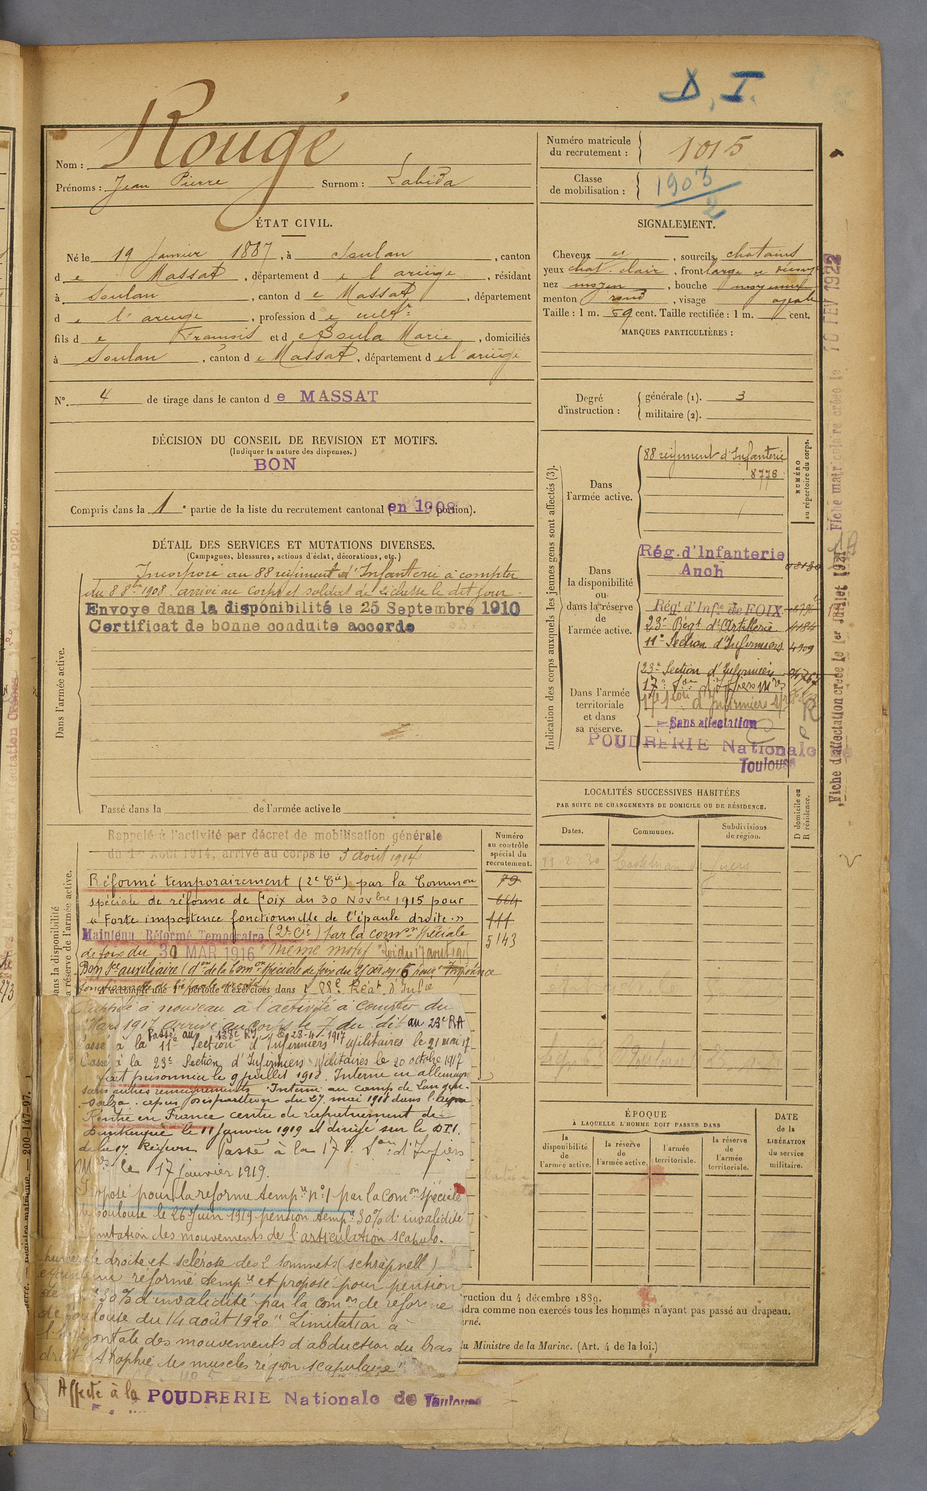 D. I.
Nom : Rougé
Prénoms : Jean Pierre Surnom : Labida
Numéro matricule du recrutement : 1015
Classe de mobilisation : 1903
2
ÉTAT CIVIL.
Né le 19 Janvier 1887, à Soulan, canton
d e Massat, département d e l'ariège, résidant
à Soulan, canton d e Massat, département
d e l'ariège, profession d e cultr
fils d e François et d e Soula Marie, domiciliés
à Soulan, canton d e Massat, département d e l'ariège
N° 4 de tirage dans le canton d e MASSAT
SIGNALEMENT.
Cheveux et, sourcils chatains
yeux chat. clair, front large
nez moyen, bouche moyenne
menton rond, visage ovale
Taille : 1 m. 59 cent. Taille rectifiée : 1 m. cent.
MARQUES PARTICULIÈRES :
Degré d'instruction : générale (1). 3
militaire (2).
DÉCISION DU CONSEIL DE REVISION ET MOTIFS.
(Indiquer la nature des dispenses.)
BON
Compris dans la 1e partie de la liste du recrutement cantonal (en 1908 portion).
DÉTAIL DES SERVICES ET MUTATIONS DIVERSES.
(Campagnes, blessures, actions d'éclat, décorations, etc.)
Dans l'armée active.
Incorporé au 88 régiment d'Infanterie à compter
du 8 8bre 1908 arrivé au Corps et soldat de 2e classe le dit jour.
Envoyé dans la disponibilité le 25 Septembre 1910
Certificat de bonne conduite accordé
Passé dans la de l'armée active le
Indication des corps auxquels les jeunes gens sont affectés (3).
NUMÉRO au répertoire du corps.
Dans l'armée active.
88 régiment d'Infanterie
8776
Dans la disponibilité ou dans la réserve de l'armée active.
Rég. d'Infanterie
Auch
Régt d'Infie de FOIX
23e Regt d'Artillerie 4184
11e Section d'Infirmiers 4909
Dans l'armée territoriale et dans sa réserve.
23e Section d'Infirmiers
Sans affectation
POUDRERIE Nationale de
Toulouse
R
P
Fiche d'affectation créée le 1er Juillet 1921
Fiche matriculaire créée le 10 FEV 1922
LOCALITÉS SUCCESSIVES HABITÉES
PAR SUITE DE CHANGEMENTS DE DOMICILE OU DE RÉSIDENCE.
Dates.
Communes.
Subdivisions de région.
D domicile ou R résidence.
Dans la disponibilité
la réserve de l'armée active.
Numéro au contrôle spécial du recrutement.
79
664
111
5143
Rappelé à l'activité par décret de mobilisation générale
du 1er Août 1914, arrivé au corps le 3 août 1914
Réformé temporairement (2e Cie) par la Common
spéciale de réforme de Foix du 30 Novbre 1915 pour
« Forte impotence fonctionnelle de l'épaule droite. »
Maintenu Réformé Temporaire (2e Cie) par la Comon spéciale
de foix du 30 MAR 1916 même motif loi du 17 août 1915
a accompli une 1e période d'exercices dans l 88e Régt d'Infie
Rappelé à nouveau à l'activité à compter du
au 23e RA
Passé au
Passé à la 11e Section d'Infirmiers Militaires le 21 mai 17
Passé à la 23e Section d'Infirmiers Militaires le 20 octobre 1917
Fait prisonnier le 9 juillet 1918. Interné en allemagne
sans autres renseignements. Interné au camp de Langen-
salza. disparition du 27 mai 1918 dans l'
Rentré en France centre de rapatriement de
Dunkerque le 11 Janvier 1919 et dirigé sur le D.I.
de la 17e Région Passé à la 17e Son d'Infiers
Mres le 17 Janvier 1919.
Proposé pour la réforme tempre n°1 par la Comon spéciale
de toulouse le 26 juin 1919 pension tempre 30% d'invalidité
limitation des mouvements de l'articulation scapulo-
humérale droite et sclérose des 2 sommets (schrapnell)
réformé tempre et proposé pour pension
30% d'invalidité par la Comon de réforme
de toulouse du 14 août 1920 "Limitation à
l'horizontale des mouvements d'abduction du bras
droit. Atrophie des muscles région scapulaire"
Affecté à la POUDRERIE Nationale de Toulouse
ÉPOQUE
À LAQUELLE L'HOMME DOIT PASSER DANS
la disponibilité de l'armée active.
la réserve de l'armée active.
l'armée territoriale.
la réserve de l'armée territoriale.
DATE de la LIBÉRATION du service militaire.
ruction du 4 décembre 1889.
dra comme non exercés tous les hommes n'ayant pas passé au drapeau.
u Ministre de la Marine. (Art. 4 de la loi.)
200-147-97.